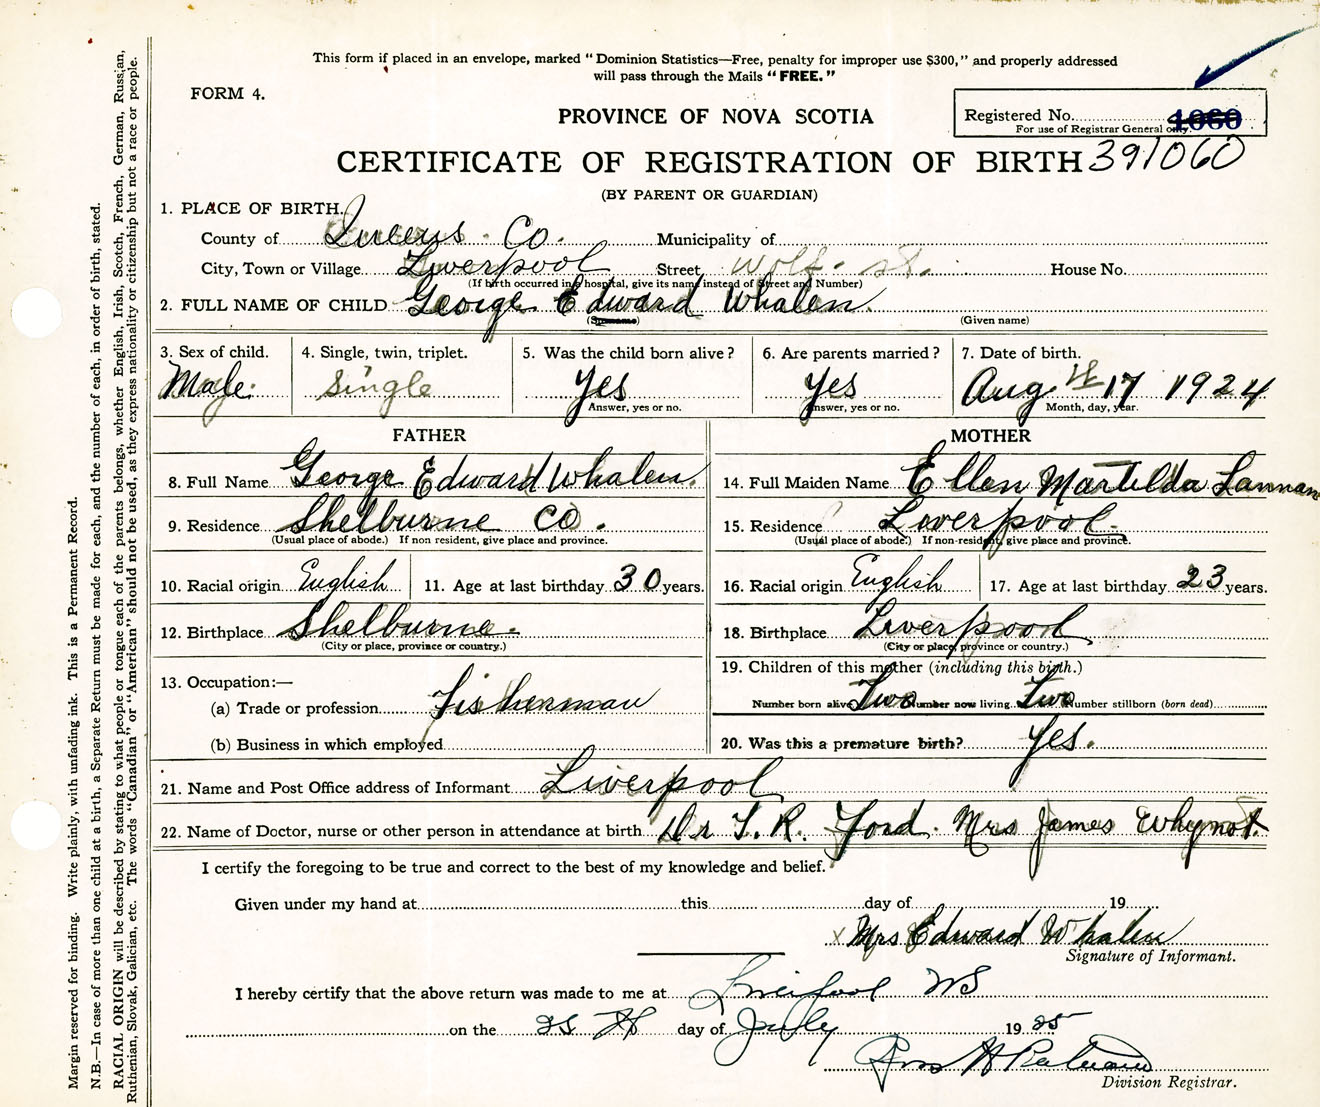 This form if placed in an envelope, marked "Dominion Statistics—Free, penalty for improper use $300," and properly addressed
will pass through the Mails "FREE."
FORM 4.
PROVINCE OF NOVA SCOTIA
Registered No. 1060
For use of Registrar General only.
CERTIFICATE OF REGISTRATION OF BIRTH 391060
(BY PARENT OR GUARDIAN)
1. PLACE OF BIRTH.
County of Queens Co. Municipality of
City, Town or Village Liverpool Street Wolf. St. House No.
(If birth occurred in a hospital, give its name instead of Street and Number)
2. FULL NAME OF CHILD George Edward Whalen.
(Surname) (Given name)
3. Sex of child. 4. Single, twin, triplet. 5. Was the child born alive? 6. Are parents married? 7. Date of birth.
Male. Single Yes Yes Aug 17 1924
Answer, yes or no. Answer, yes or no. Month, day, year.
FATHER MOTHER
8. Full Name George Edward Whalen. 14. Full Maiden Name Ellen Martilda Lannan
9. Residence Shelburne Co. 15. Residence Liverpool.
(Usual place of abode.) If non resident, give place and province. (Usual place of abode.) If non-resident, give place and province.
10. Racial origin English 11. Age at last birthday 30 years. 16. Racial origin English 17. Age at last birthday 23 years.
12. Birthplace Shelburne. 18. Birthplace Liverpool
(City or place, province or country.) (City or place, province or country.)
13. Occupation:— 19. Children of this mother (including this birth.)
(a) Trade or profession Fisherman Number born alive Two Number now living Two Number stillborn (born dead)
(b) Business in which employed 20. Was this a premature birth? Yes.
21. Name and Post Office address of Informant Liverpool
22. Name of Doctor, nurse or other person in attendance at birth Dr T. R. Ford. Mrs James Whynot.
I certify the foregoing to be true and correct to the best of my knowledge and belief.
Given under my hand at this day of 19
x Mrs Edward Whalen
Signature of Informant.
I hereby certify that the above return was made to me at Liverpool NS
on the 25 th day of July 1925
Division Registrar.
Margin reserved for binding. Write plainly, with unfading ink. This is a Permanent Record.
N.B.—In case of more than one child at a birth, a Separate Return must be made for each, and the number of each, in order of birth, stated.
RACIAL ORIGIN will be described by stating to what people or tongue each of the parents belongs, whether English, Irish, Scotch, French, German, Russian,
Ruthenian, Slovak, Galician, etc. The words "Canadian" or "American" should not be used, as they express nationality or citizenship but not a race or people.